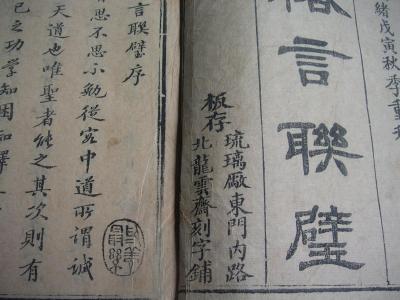 緒戊寅秋季重刊
格言聯璧
板存
琉璃廠東門內路
北龍雲齋刻字鋪
言聯璧序
者思不思不勉從容中道所謂誠
天道也唯聖者能之其次則有
己之功學知困知擇